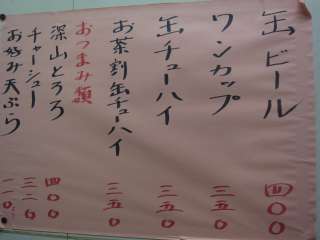 缶ビール 四〇〇
ワンカップ 三五〇
缶チューハイ 三五〇
お茶割缶チューハイ 三五〇
おつまみ類
深山とろろ 四〇〇
チャーシュー 三二〇
お好み天ぷら 一一〇